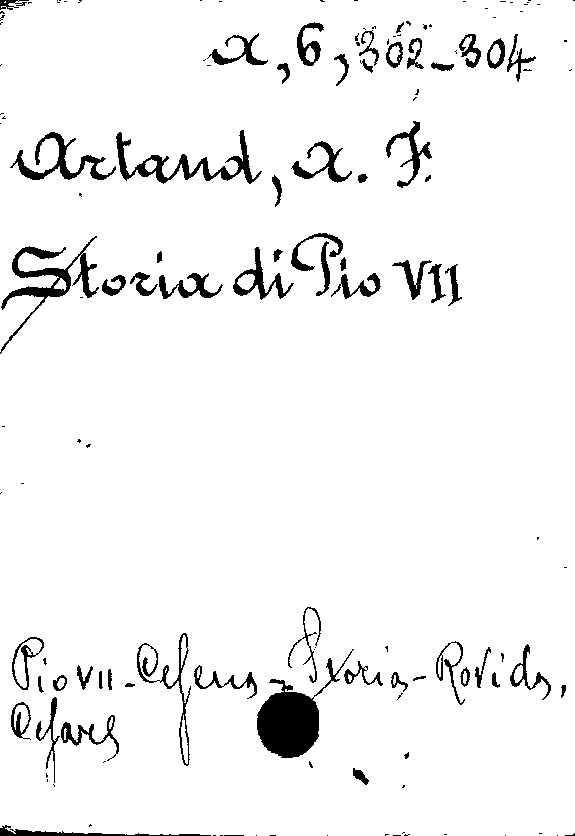 A, 6, 302-304
Artaud, A. F.
Storia di Pio VII
Pio VII - Cesena - Storia - Rovida,
Cesare